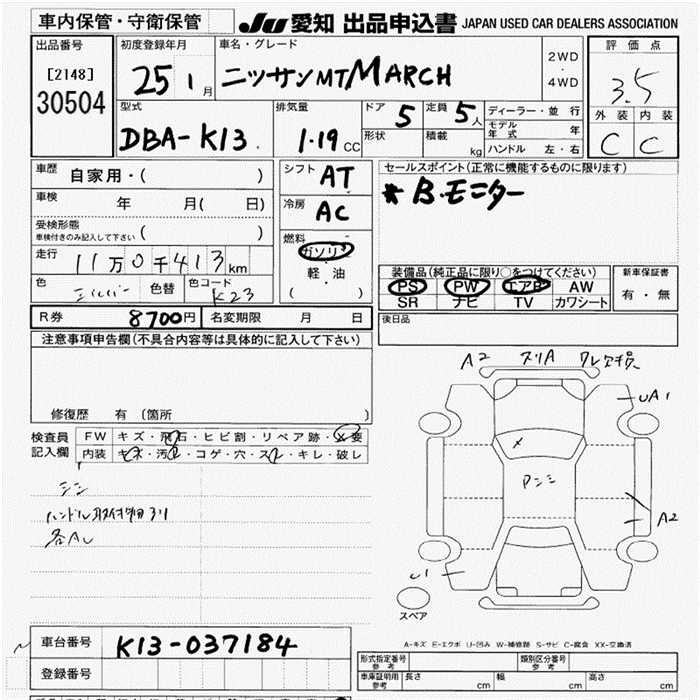 車内保管・守衛保管
JU 愛知 出品申込書 JAPAN USED CAR DEALERS ASSOCIATION
出品番号
[2148]
30504
初度登録年月
25 1 月
車名・グレード
ニッサンMTMARCH
2WD
・
4WD
評価点
3.5
外装 内装
C C
型式
DBA-K13
排気量
1.19 CC
ドア 5
形状
定員 5人
積載 kg
ディーラー・並行
モデル年式 年
ハンドル 左・右
車歴
自家用・( )
車検 年 月( 日)
受検形態
車検付きのみ記入して下さい ( )
走行
11万0千413km
色 シルバー 色替 色コード K23
シフト AT
冷房 AC
燃料
ガソリン
軽・油
( )
セールスポイント(正常に機能するものに限ります)
* B.モニター
装備品(純正品に限り○をつけてください)
PS PW エアB AW
SR ナビ TV カワシート
新車保証書
有・無
R券 8700円 名変期限 月 日
後日品
注意事項申告欄(不具合内容等は具体的に記入して下さい)
修復歴 有 (箇所 )
検査員
記入欄
FW キズ・飛石・ヒビ割・リペア跡・X要
内装 キズ・汚れ・コゲ・穴・スレ・キレ・破レ
シミ
A2 スリA
UA1
A2
U1
スペア
A-キズ E-エクボ U-凹み W-補修跡 S-サビ C-腐食 XX-交換済
車台番号 K13-037184
登録番号
形式指定番号
参考
類別区分番号
参考
車庫証明用
参考
長さ cm 幅 cm 高さ cm